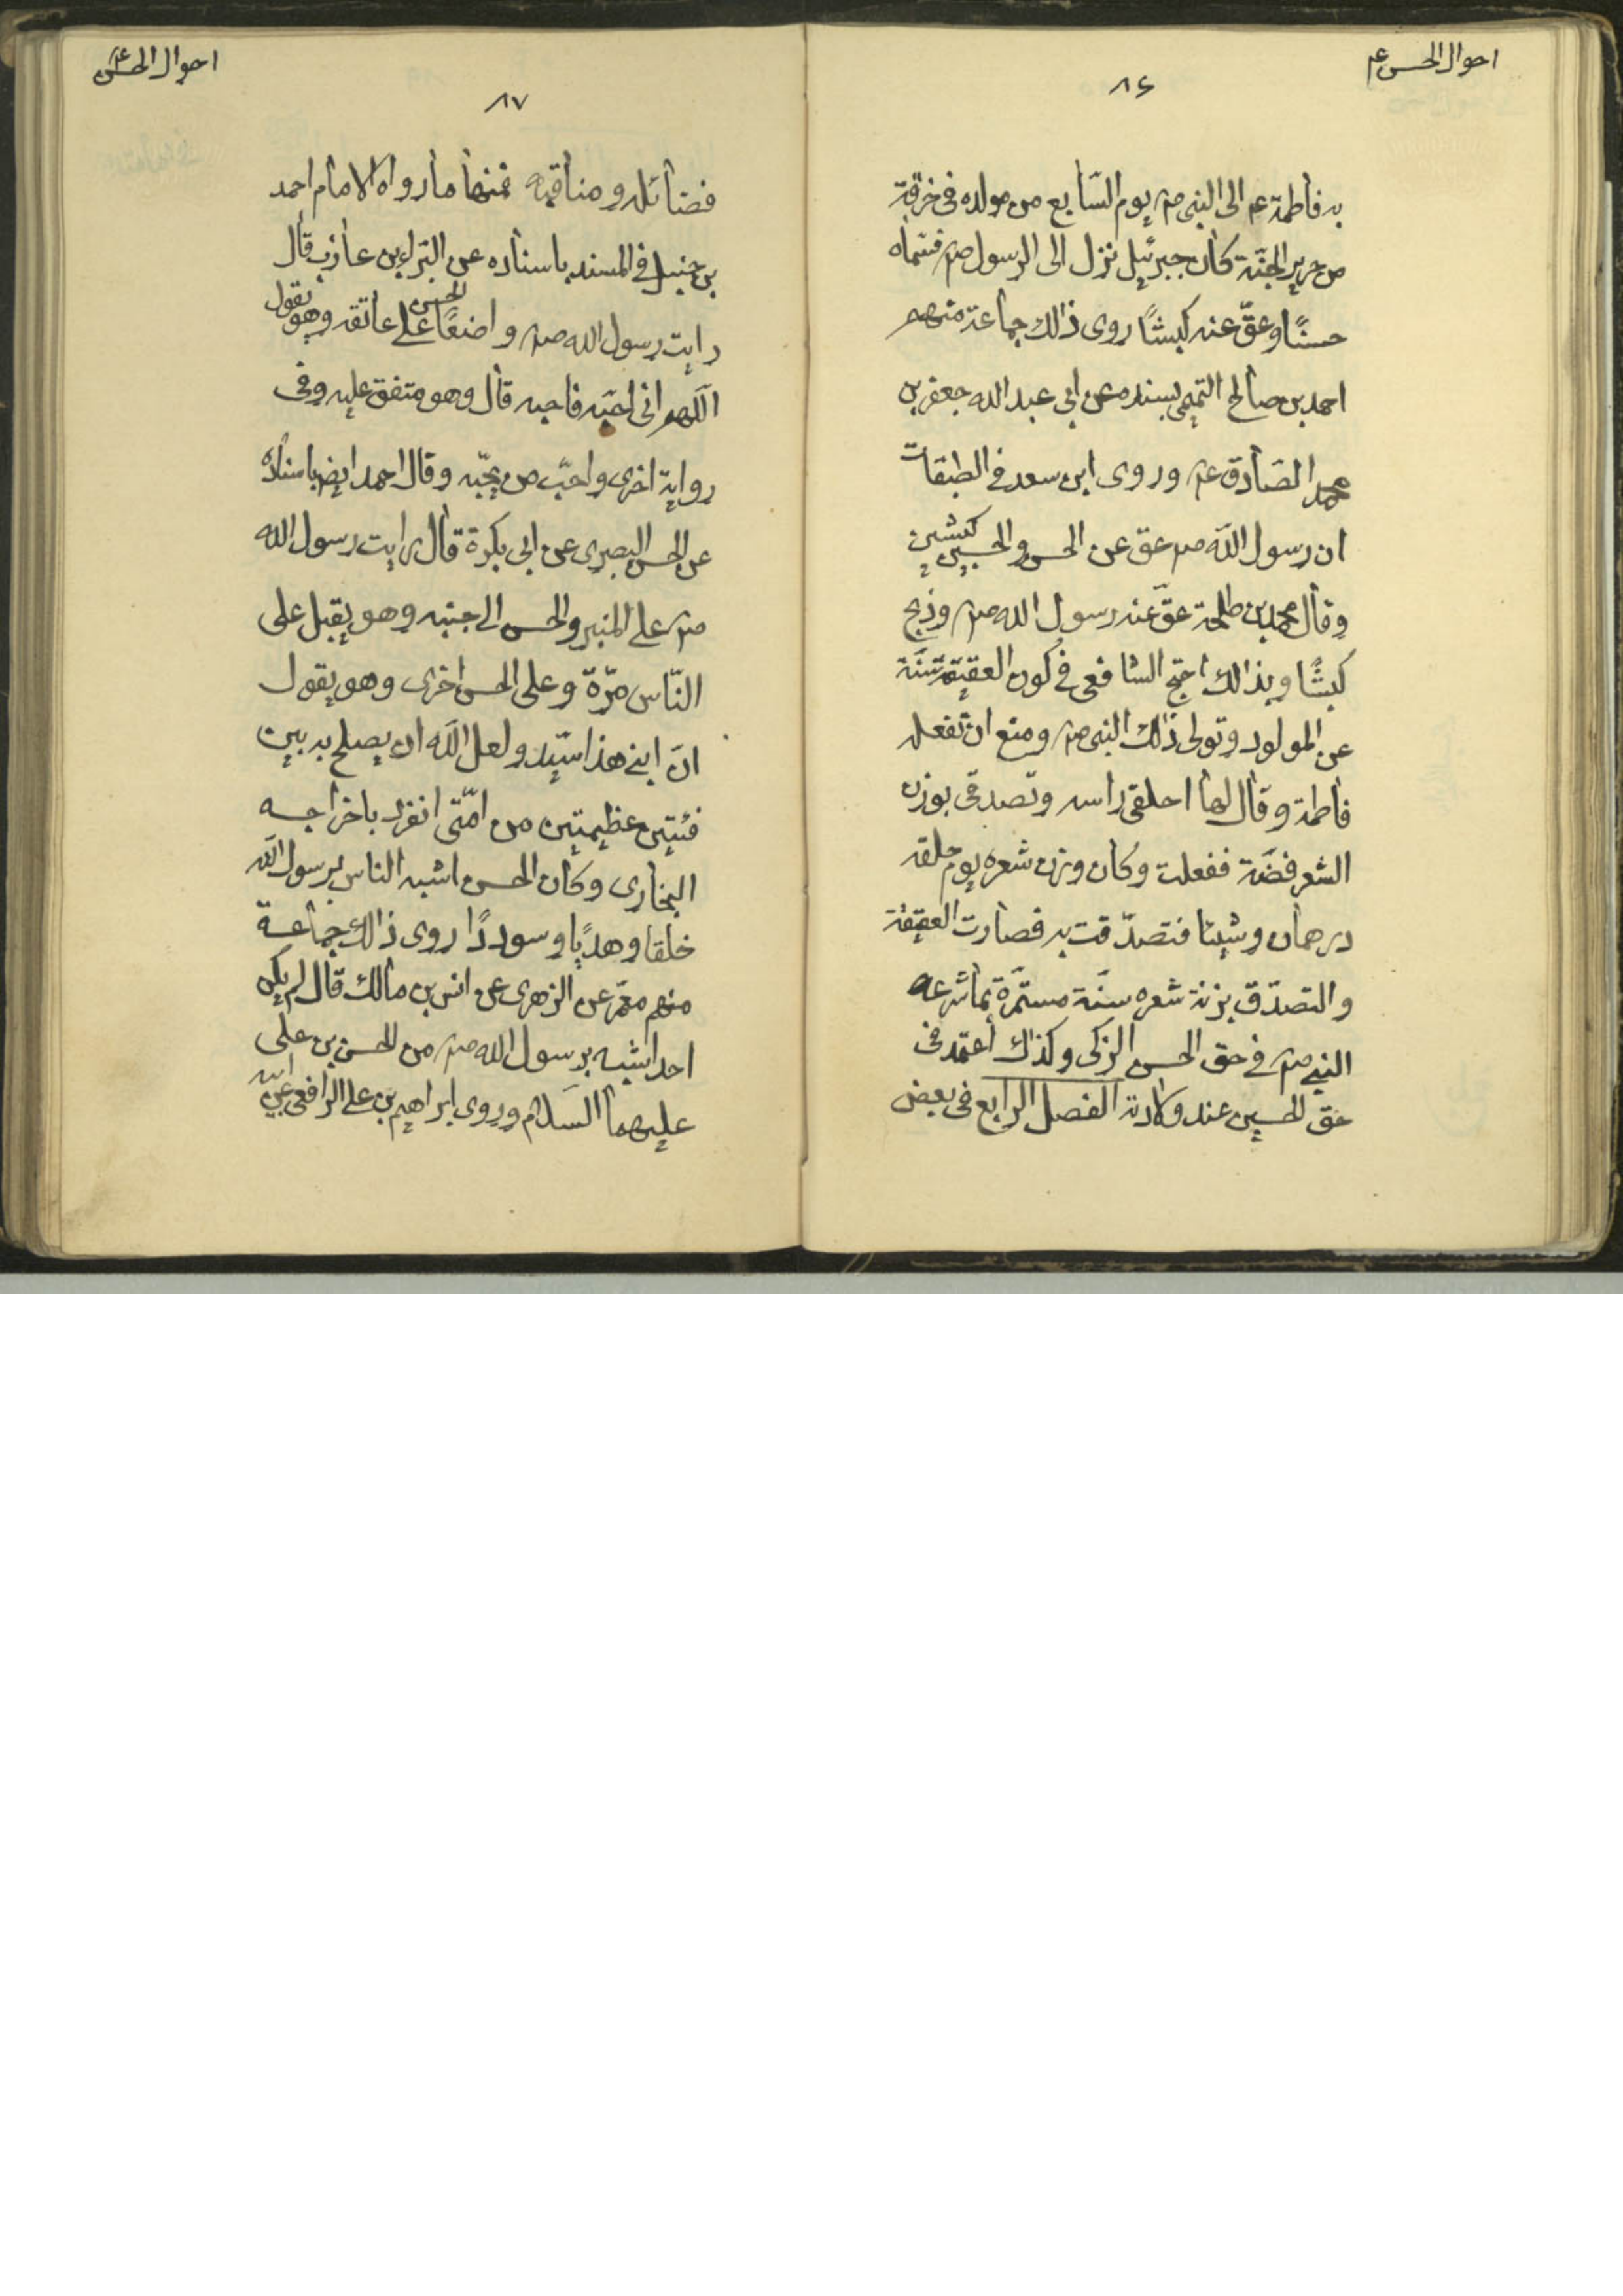 احوال الحسن عم
٨٤
به فاطمة عم الى النبي صم يوم السّابع من مولده فى خرقة
من حرير الجنّة كان جبرئيل نزل الى الرسول صم فسّماه
حسنًا وعقّ عنه كبشًا روى ذالك جماعة منهم
احمد بن صالح التميمى بسنده عن ابي عبد الله جعفر بن
محمد الصّادق عم وروى ابن سعد فى الطبقات
ان رسول الله صم عق عن الحسن والحسين كبشين
وقال محمد بن طلحة عقّ عنه رسول الله صم وذبح
كبشًا وبذالك احتج الشافعى فى كون العقيقة سنّة
عن المولود وتولى ذلك النبى صم ومنع ان تفعله
فاطمة وقال لها احلقى راسه وتصدقى بوزن
الشعر فضّة ففعلت وكان وزن شعره يوم حلقه
درهمان وشيئا فتصدّقت به فصارت العقيقة
والتصدّق بزنة شعره سنّة مستمّرة بما شرعه
النبى صم فى حق الحسن الزكى وكذلك اعتمد فى
حق الحسين عند ولادته الفصل الرابع فى بعض
احوال الحسن عم
٨٧
فضائله ومناقبه فمنها ما رواه الامام احمد
بن حنبل فى المسند باسناده عن البّراء بن عازب قال
رايت رسول الله صم واضعًا الحسن على عاتقه وهو يقول
اللّهم انى احبّه فاحبه قال وهو متفق عليه وفى
رواية اخرى واحبّ من يحبّه وقال احمد ايضا باسناده
عن الحسن البصرى عن ابى بكرة قال رايت رسول الله
صم على المنبر والحسن الى جنبه وهو يقبل على
النّاس مرّة وعلى الحسن اخرى وهو يقول
انّ ابنى هذا سيّد ولعل الله ان يصلح به بين
فئتين عظيمتين من امّتى انفرد باخراجه
البخارى وكان الحسن اشبه الناس برسول الله
خلقا وهديًا وسوددًا روى ذالك جماعة
منهم معمّر عن الزهرى عن انس بن مالك قال لم يكن
احد اشبه برسول الله صم من الحسن بن على
عليهما السّلام وروى ابراهيم بن على الرافعى عن ابيه